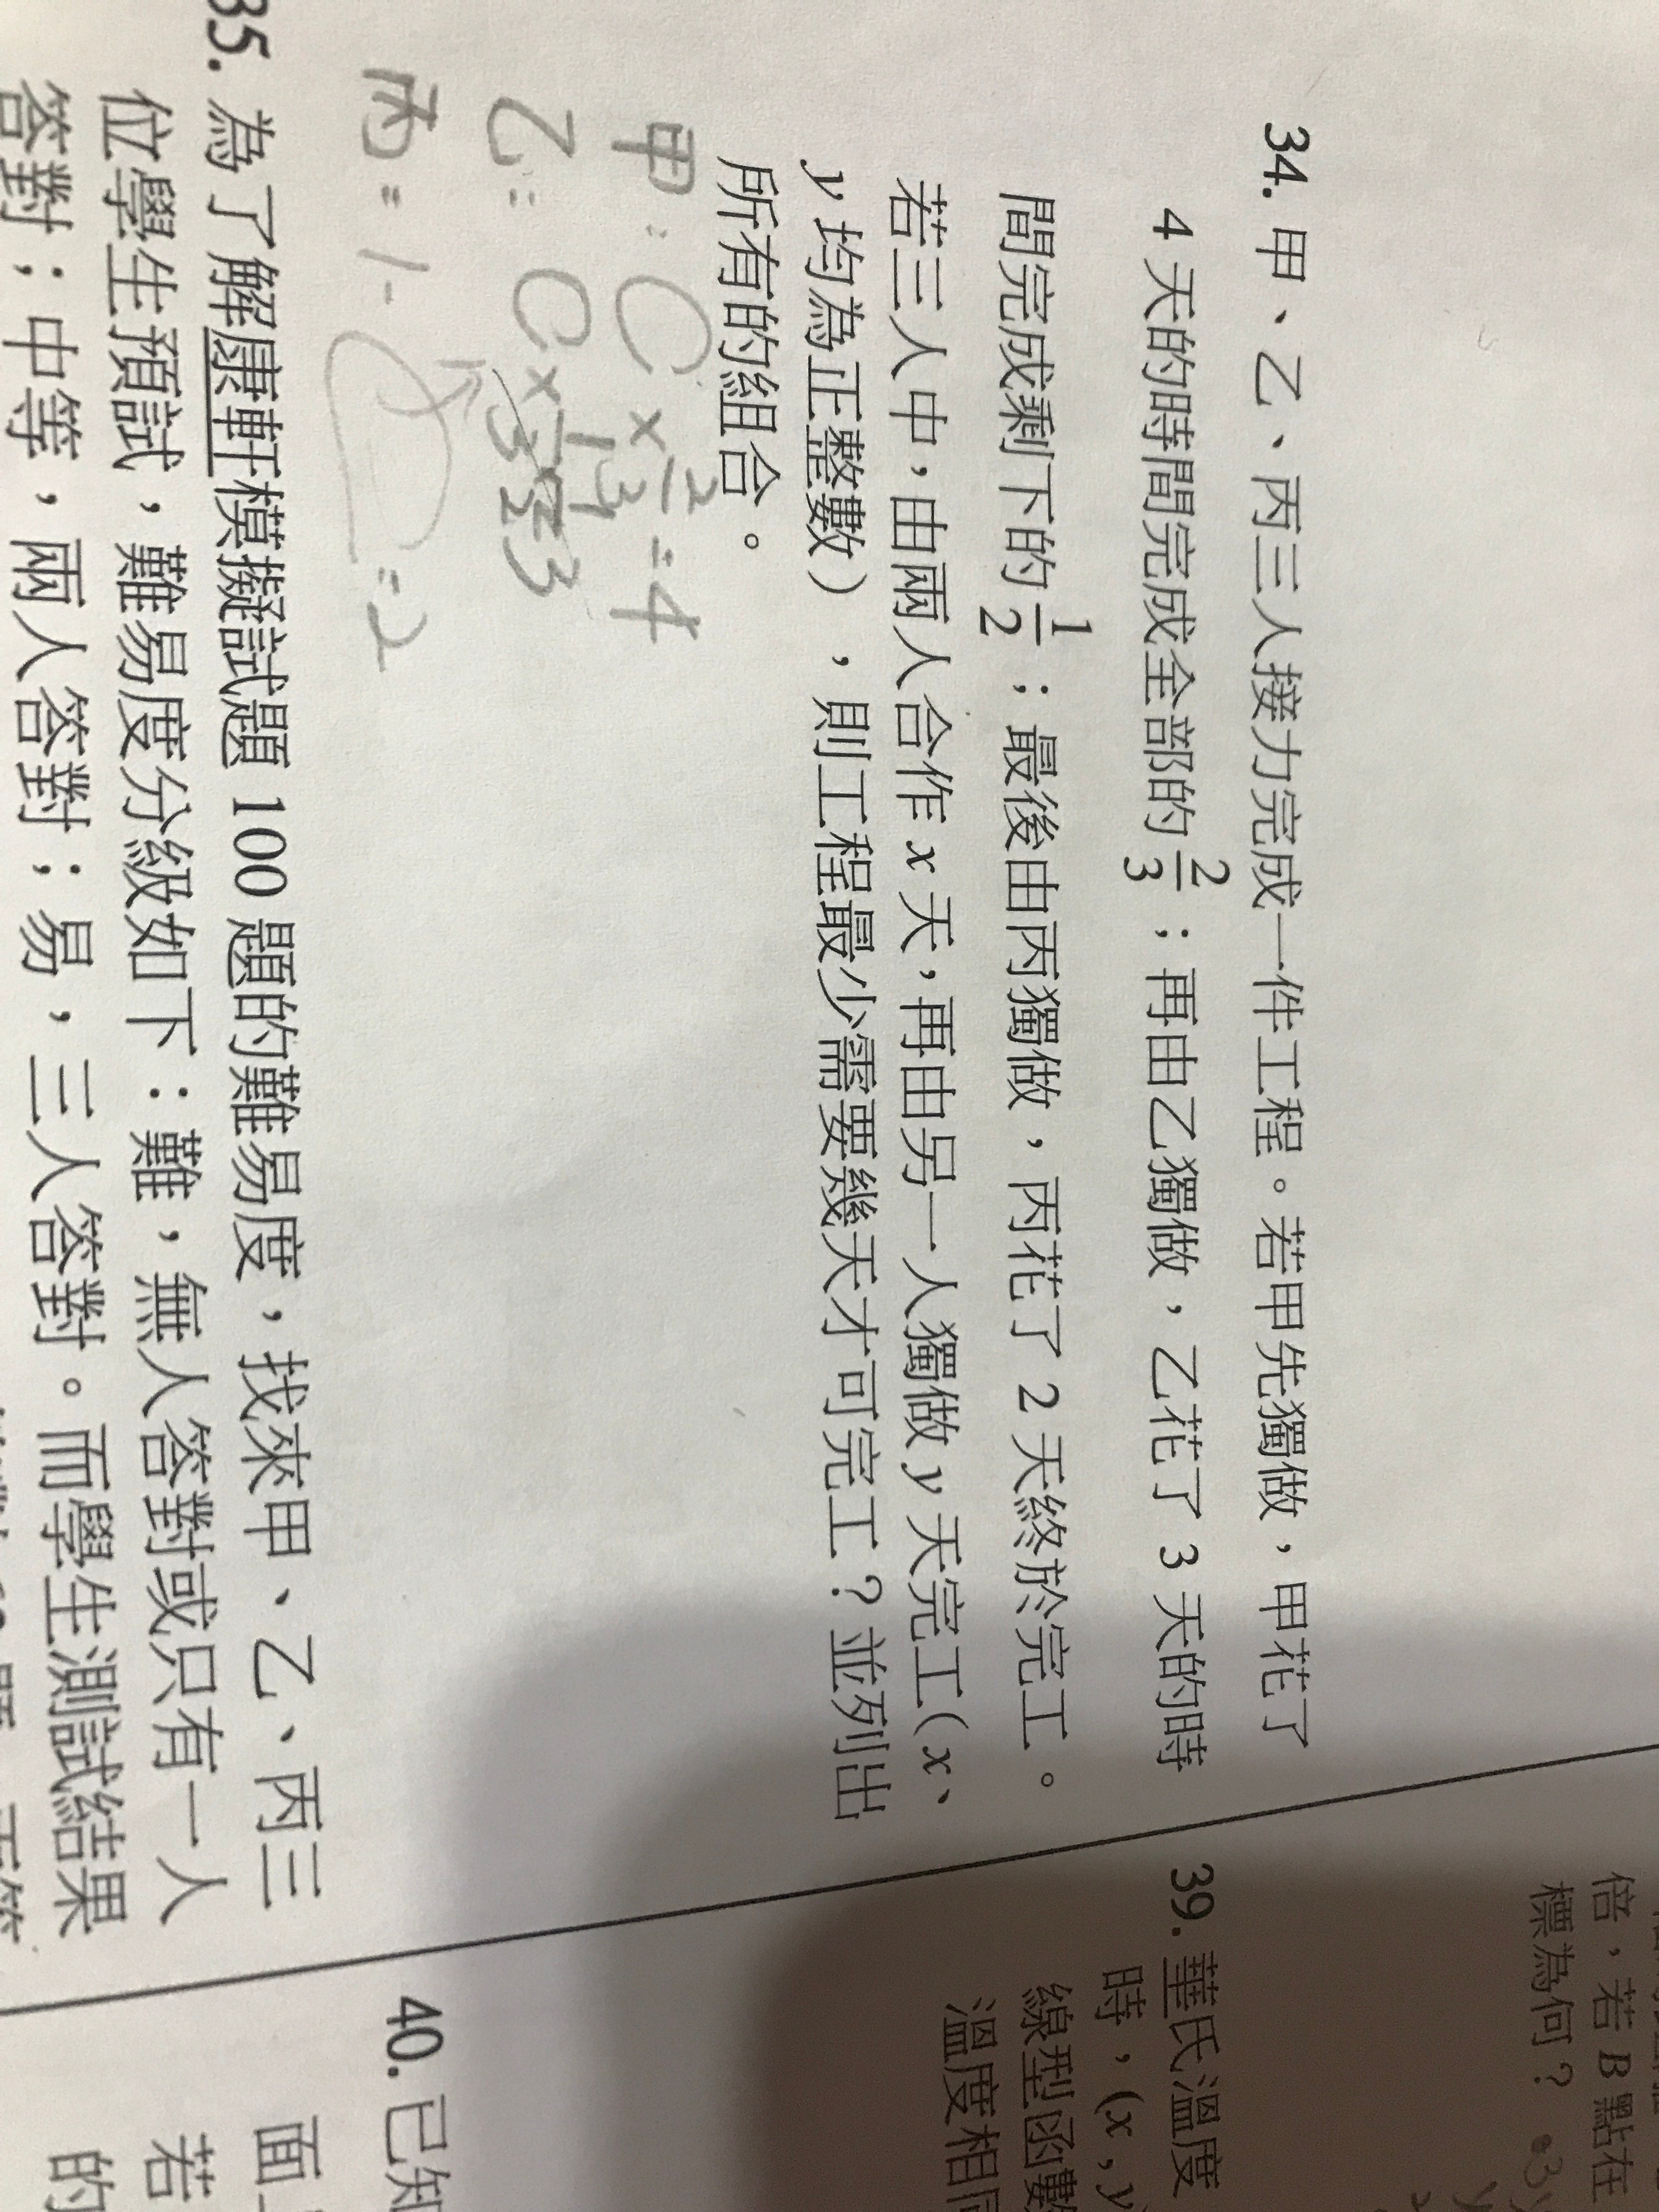 34. 甲、乙、丙三人接力完成一件工程。若甲先獨做，甲花了
4 天的時間完成全部的 2/3；再由乙獨做，乙花了 3 天的時
間完成剩下的 1/2；最後由丙獨做，丙花了 2 天終於完工。
若三人中，由兩人合作 x 天，再由另一人獨做 y 天完工（x、
y 均為正整數），則工程最少需要幾天才可完工？並列出
所有的組合。
甲：C × 2/3 = 4
乙：C × 1/3
丙 = 1 -
= 2
35. 為了解康軒模擬試題 100 題的難易度，找來甲、乙、丙三
位學生預試，難易度分級如下：難，無人答對或只有一人
答對；中等，兩人答對；易，三人答對。而學生測試結果
倍，若 B 點在
標為何？
39. 華氏溫度
時，(x , y
線型函數
溫度相同
40. 已知
面
若
的